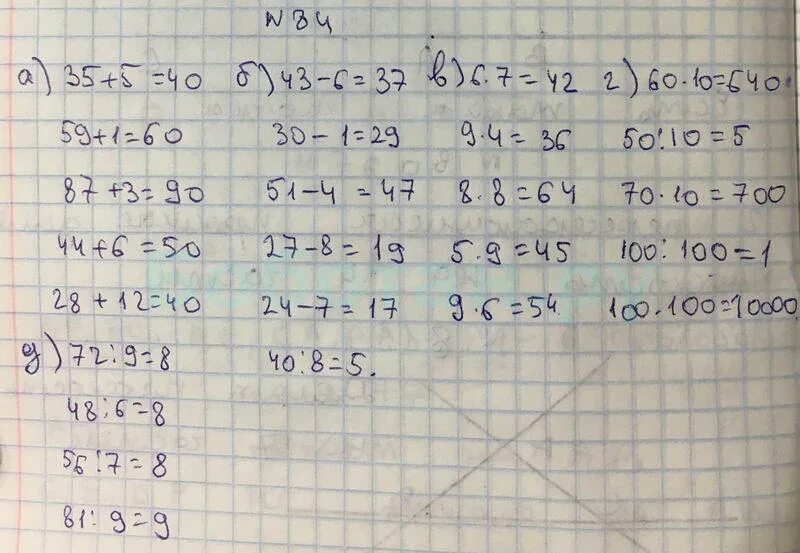 N 84
а) 35+5=40 б) 43-6=37 в) 6·7=42 г) 60·10=640
59+1=60 30-1=29 9·4=36 50:10=5
87+3=90 51-4=47 8·8=64 70·10=700
44+6=50 27-8=19 5·9=45 100:100=1
28+12=40 24-7=17 9·6=54 100·100=10000
д) 72:9=8 40:8=5.
48:6=8
56:7=8
81:9=9